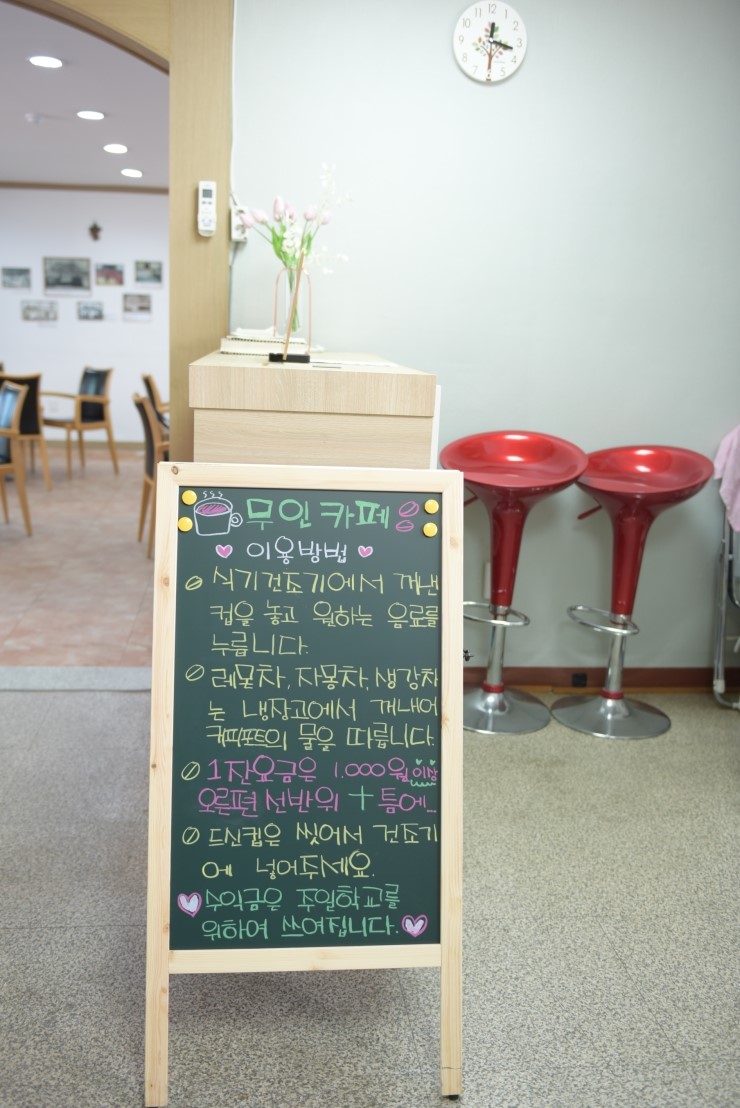 무인카페
이용방법
식기건조기에서 꺼낸
컵을 놓고 원하는 음료를
누릅니다.
레몬차, 자몽차, 생강차
는 냉장고에서 꺼내어
커피포트의 물을 따릅니다.
1잔요금은 1.000원 이상
오른편 선반위 + 틈에...
드신컵은 씻어서 건조기
에 넣어주세요.
수익금은 주일학교를
위하여 쓰여집니다.